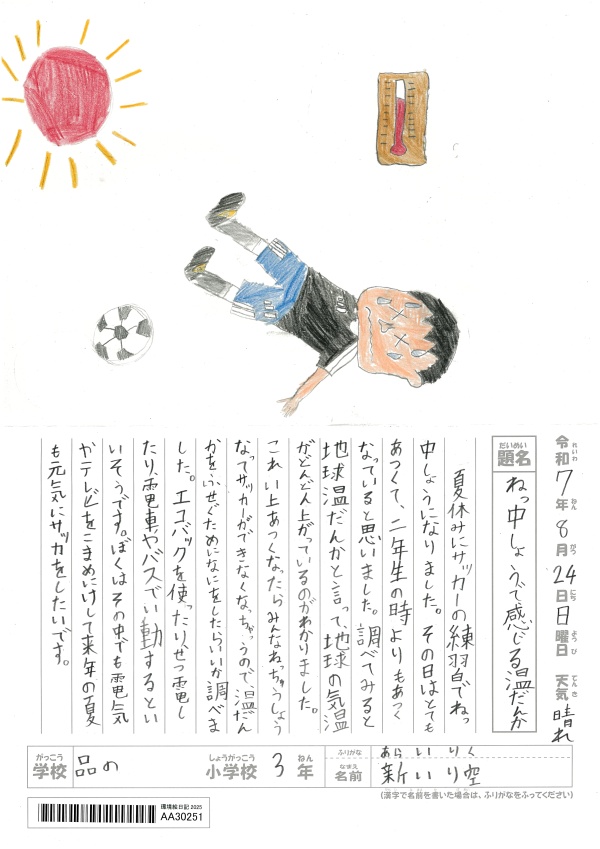 令和7年8月24日日曜日 天気 晴れ
れいわ ねん がつ にち ようび てんき
だいめい
題名 ねっ中しょうで感じる温だんか
夏休みにサッカーの練習でねっ
中しょうになりました。その日はとても
あつくて、二年生の時よりもあつく
なっていると思いました。調べてみると
地球温だんかと言って、地球の気温
がどんどん上がっているのがわかりました。
これ以上あつくなったらみんなねっちゅうしょう
なってサッカーができなくなっちゃうので、温だん
かをふせぐためになにをしたらいいか調べま
した。エコバックを使ったり、せつ電し
たり、電車やバスでい動するとい
いそうです。ぼくはその中でも電気
やテレビをこまめにけして来年の夏
も元気にサッカをしたいです。
がっこう
学校 品の
しょうがっこう
小学校 3年
ねん
ふりがな あらい りく
なまえ
名前 新い り空
(漢字で名前を書いた場合は、ふりがなをふってください)
環境絵日記2025
AA30251